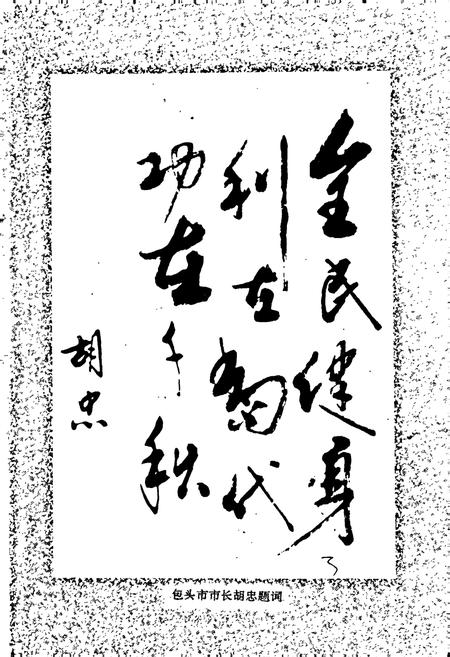 全民健身
利在當代
功在千秋
胡忠
包头市市长胡忠题词